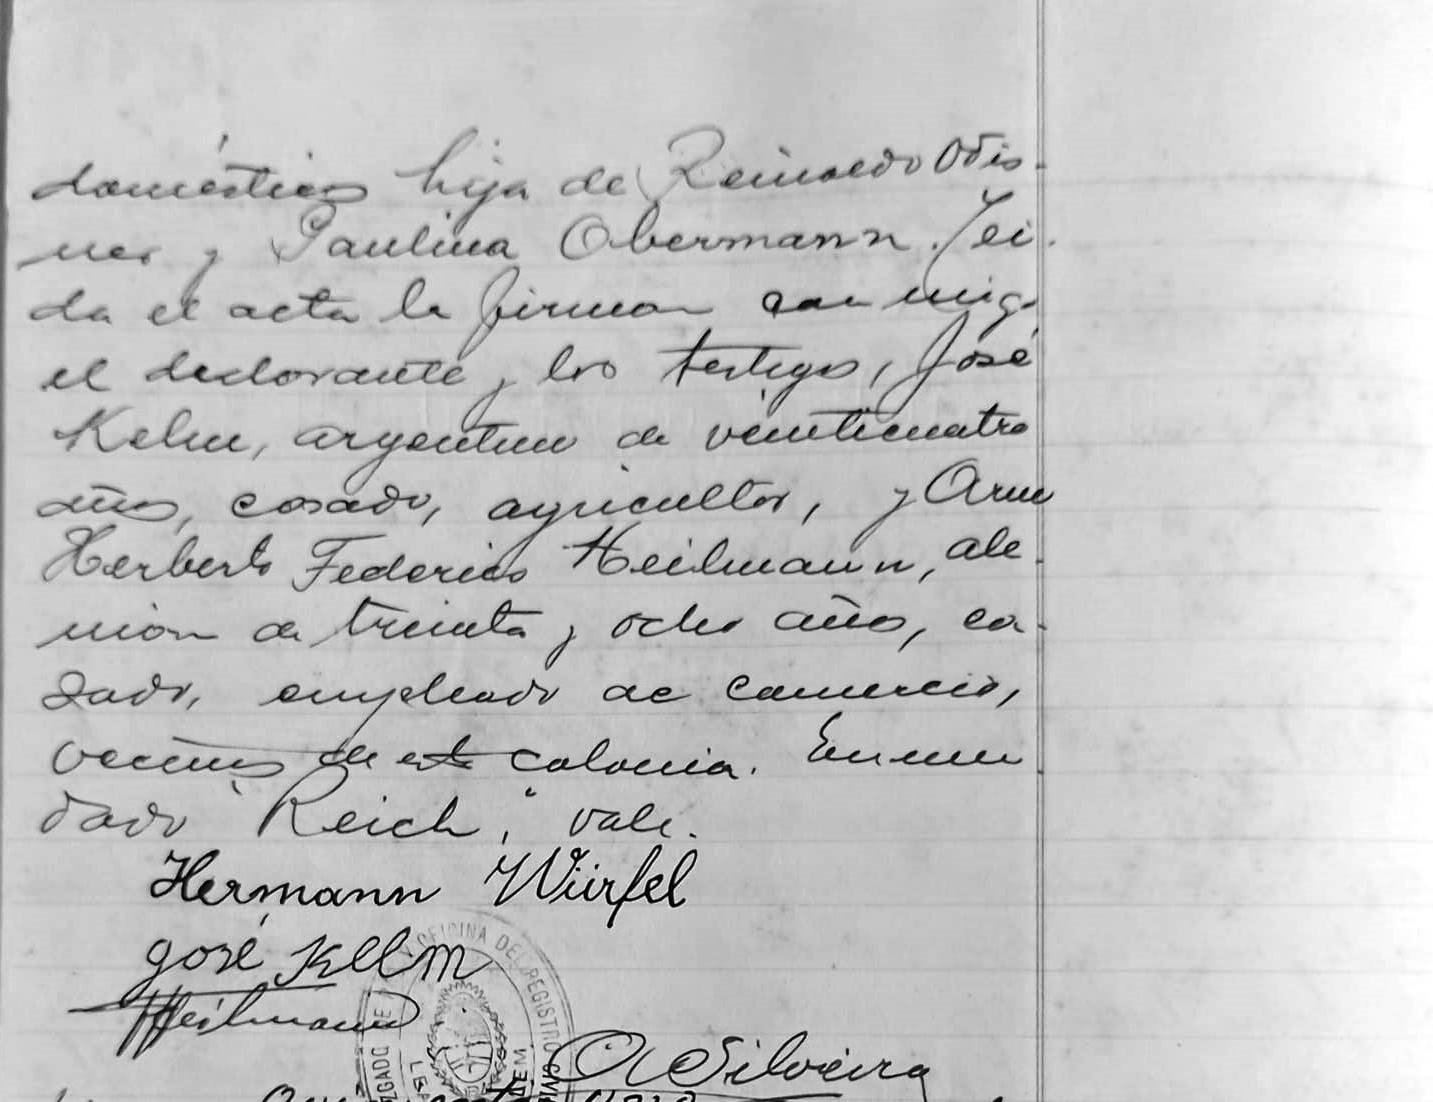 domésticos hija de Reinoldo Otis-
ner y Paulina Obermann. Lei-
da el acta la firman conmigo
el declarante y los testigos, José
Kelm, argentino de veinticuatro
años, casado, agricultor, y Arno
Herberto Federico Heilmann, ale-
mán de treinta y ocho años, ca-
sado, empleado de comercio,
vecinos de esta colonia. Enmen
dado "Reich", vale.
Hermann Würfel
José Kelm
HHeilmann
OFICINA DEL REGISTRO CIVIL
JUZGADO DE
L.
ALEM
Silveira